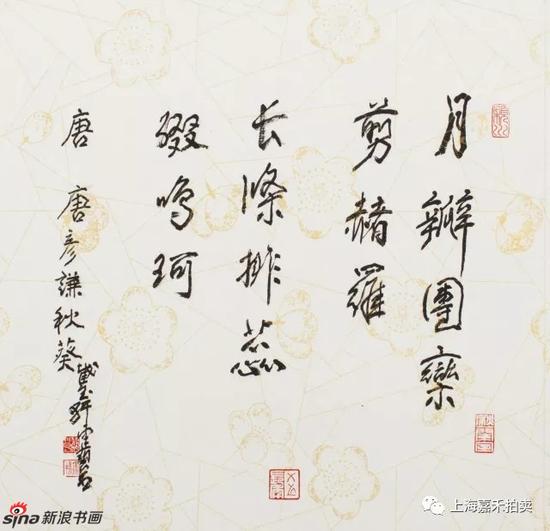 月瓣團欒
剪赭羅
長條排蕊
綴鳴珂
唐 唐彦謙秋葵
sina新浪书画
上海嘉禾拍卖